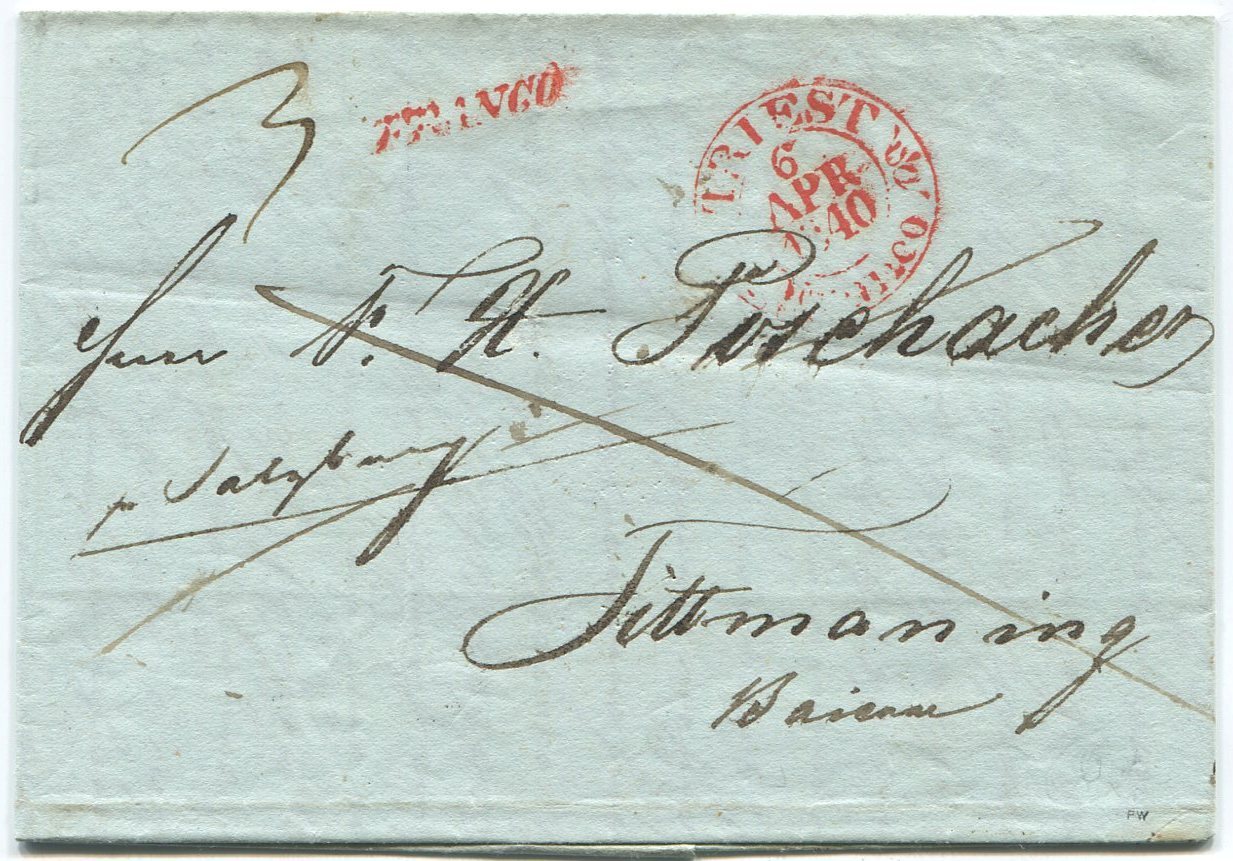 3
FRANCO
TRIEST
6
APR
1840
Herrn F. X. Poschacher
pr Salzburg
Tittmaning
Baiern
PW